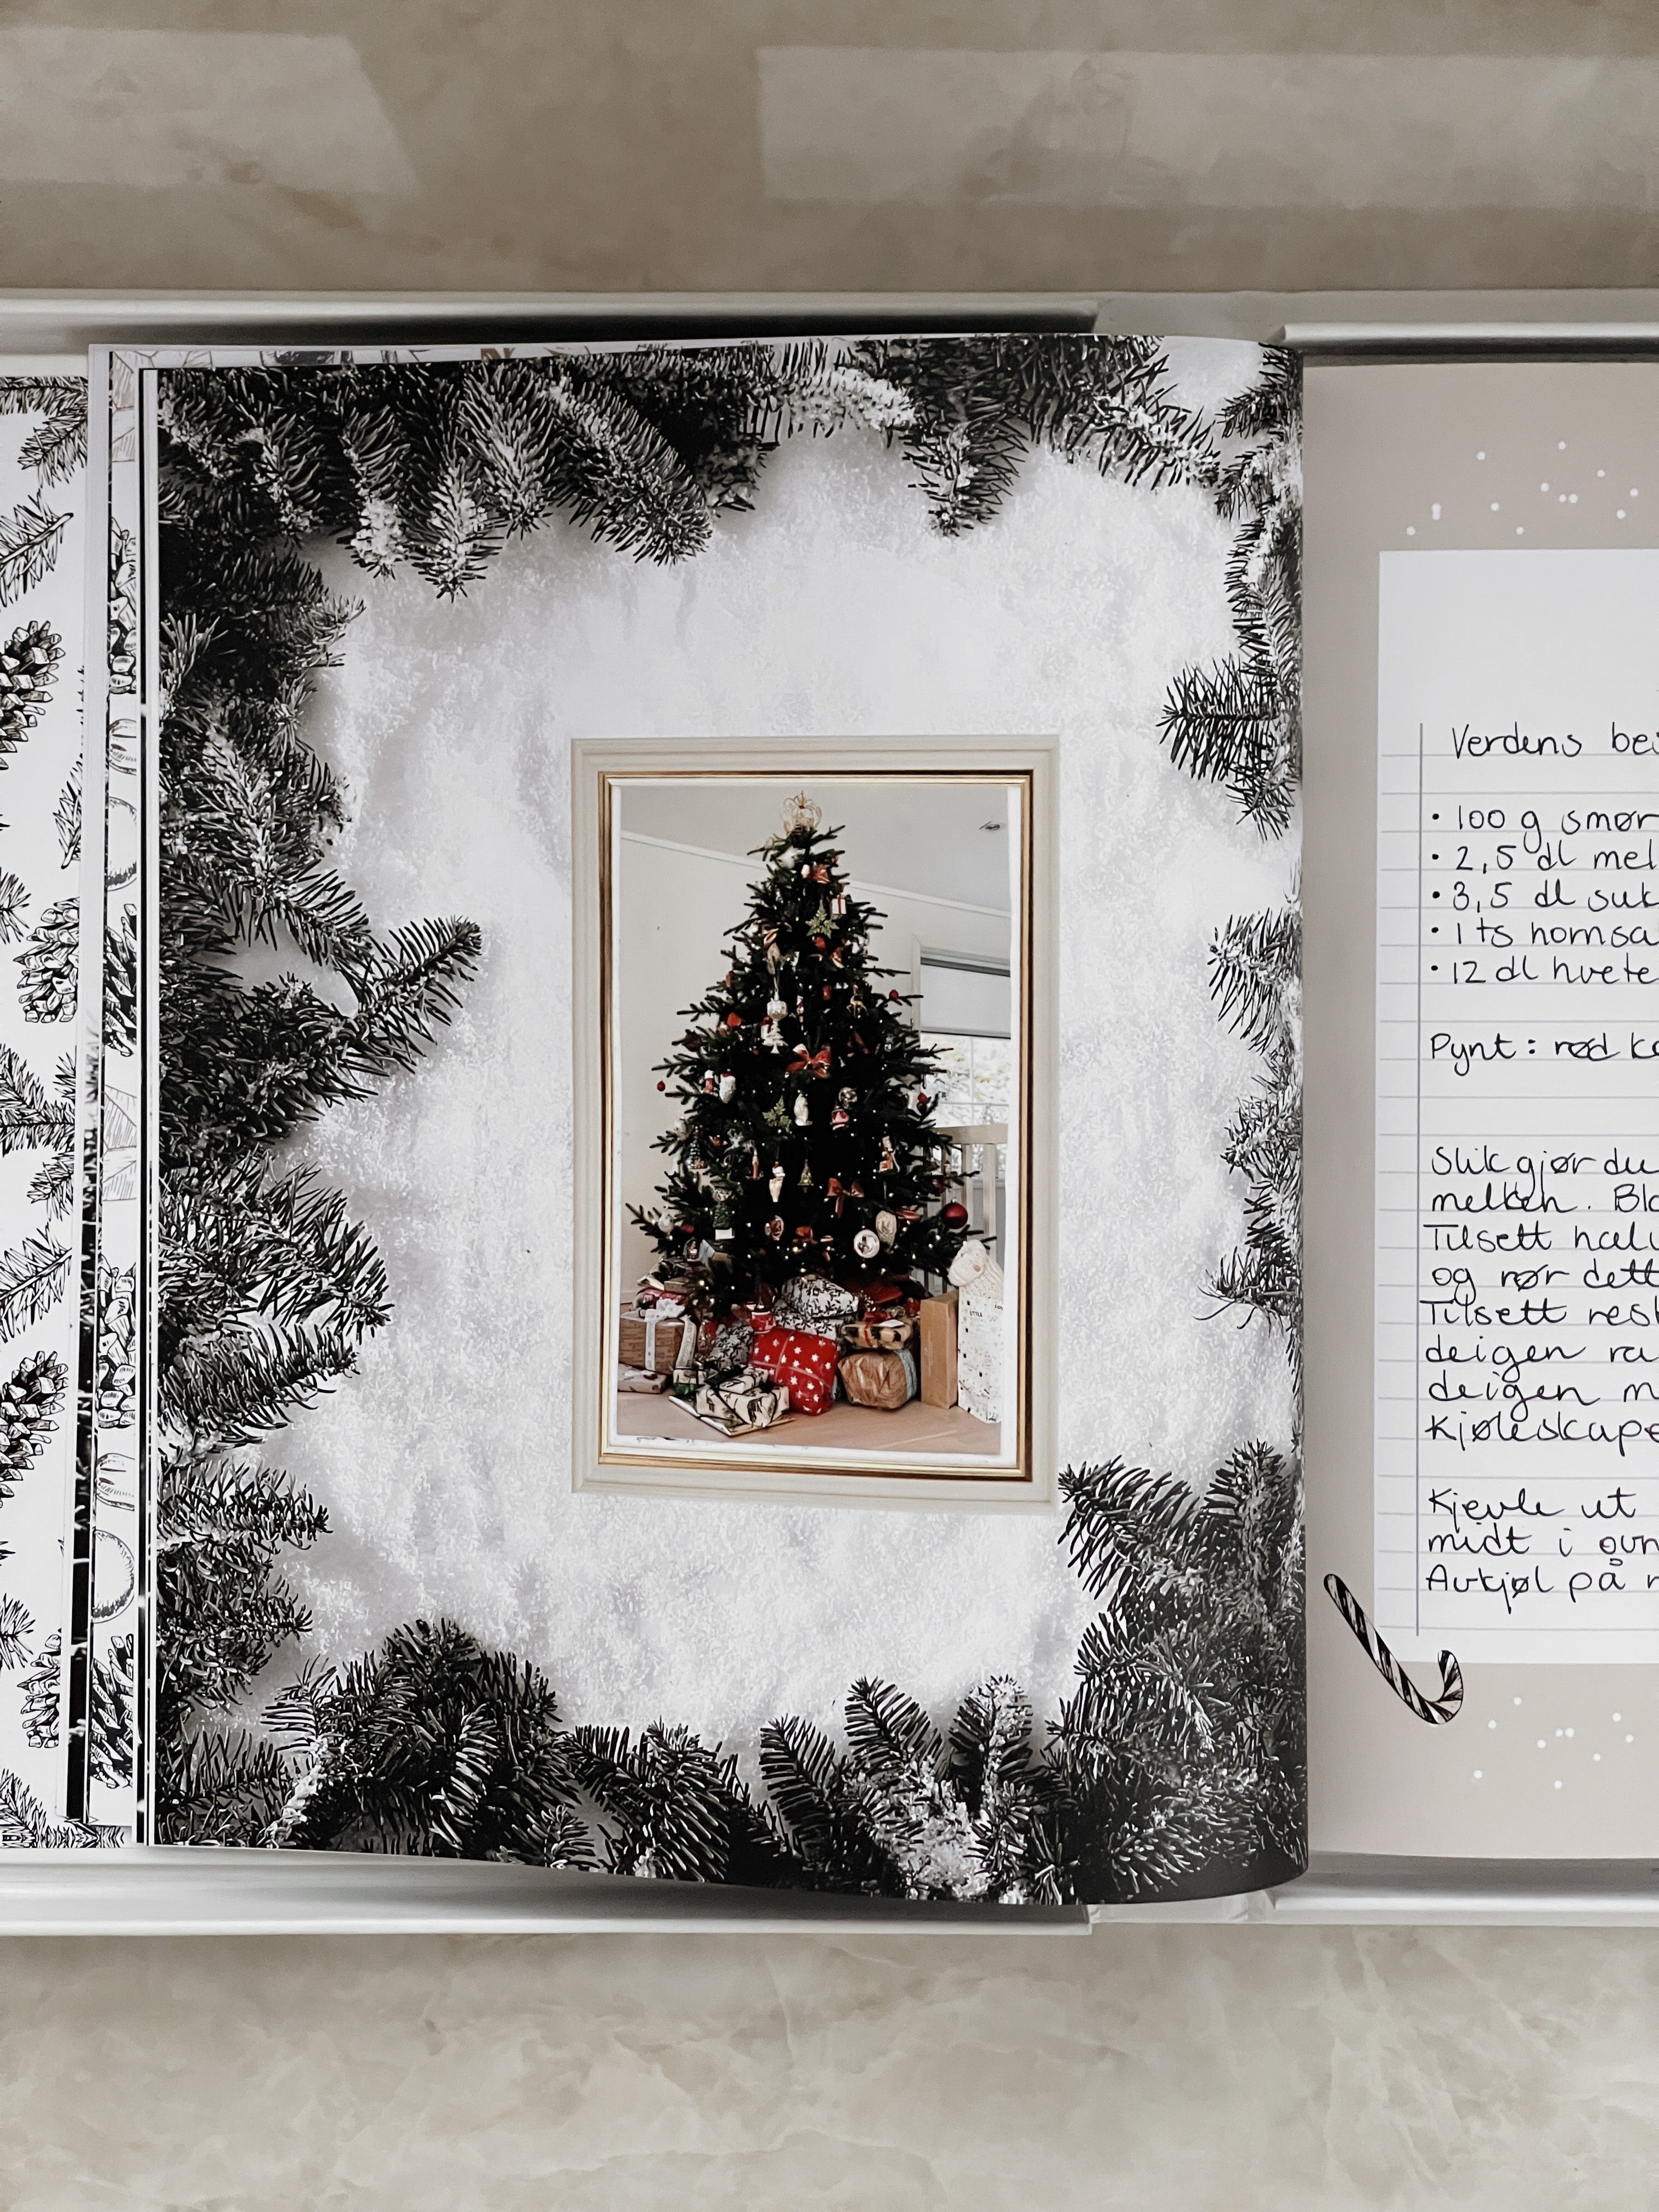 Verdens bes
• 100 g smør
• 2,5 dl mel
• 3,5 dl suk
• 1 ts hornsa
• 12 dl hvete
Pynt: rød ko
Slik gjør du
melken. Bla
Tilsett halv
og rør dett
Tilsett rest
deigen ra
deigen m
kjøleskape
Kjevle ut
midt i ovn
Avkjøl på r